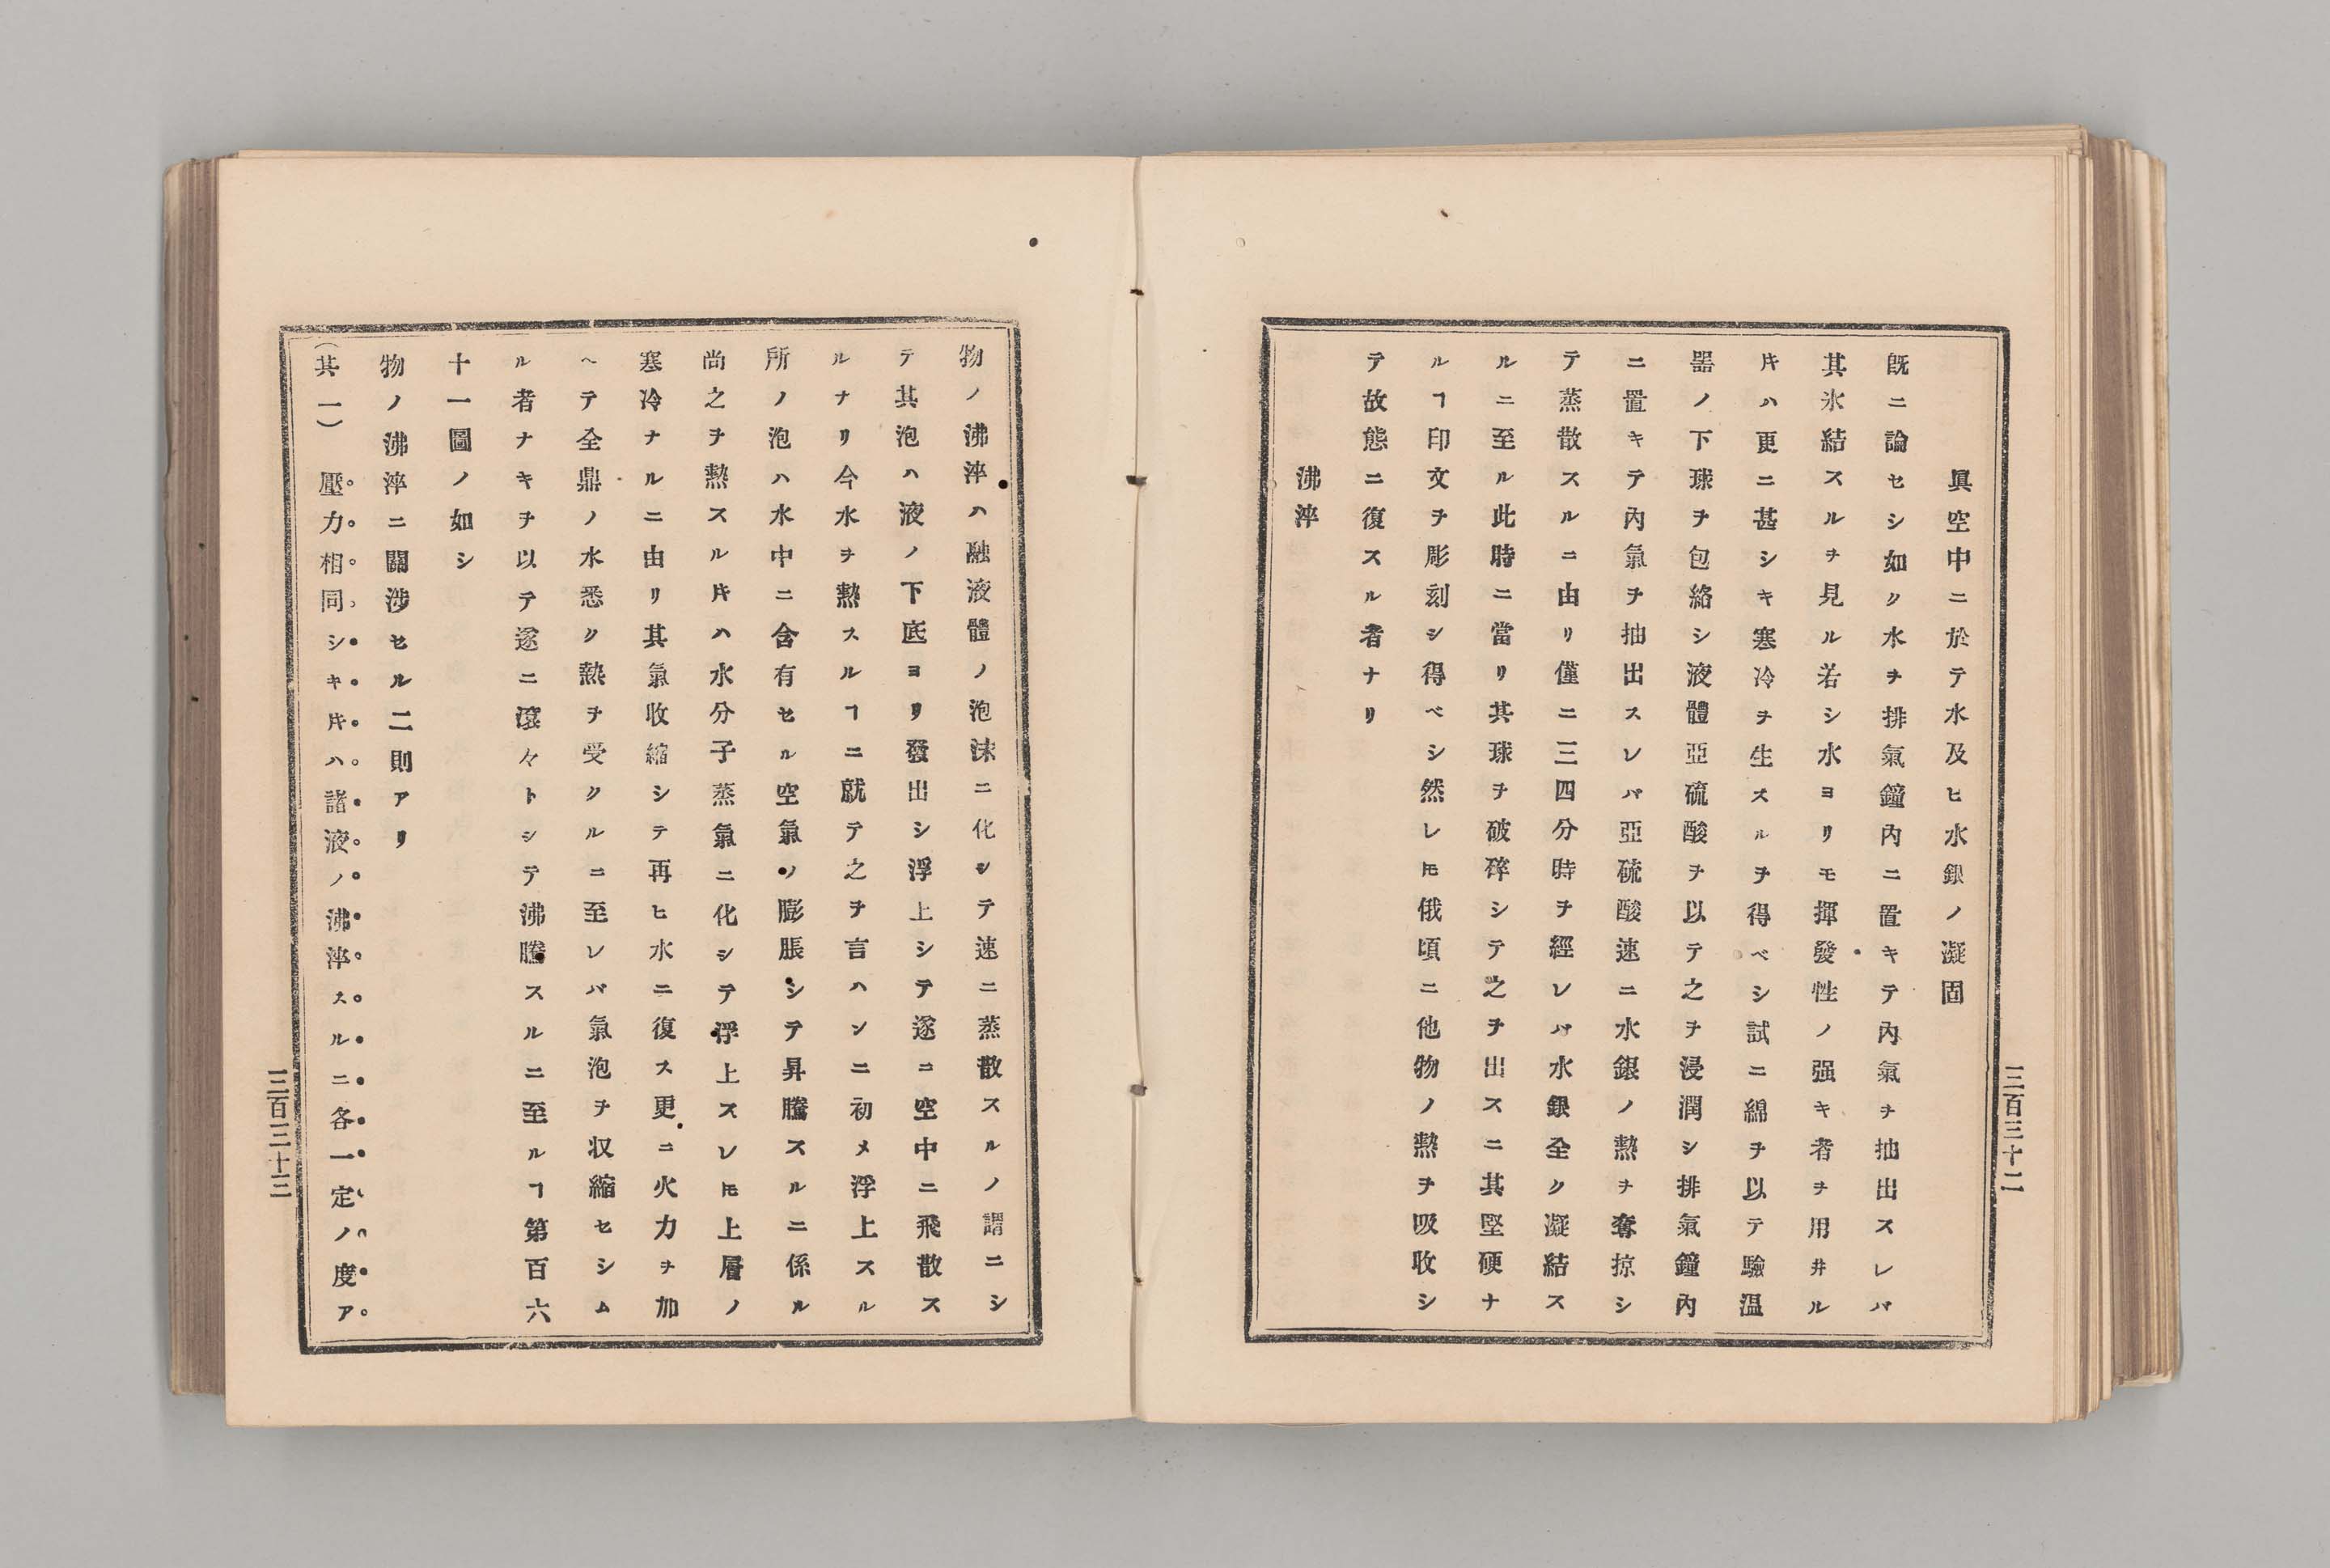 眞空中ニ於テ水及ヒ水銀ノ凝固
既ニ論セシ如ク水ヲ排氣鐘內ニ置キテ內氣ヲ抽出スレバ
其氷結スルヲ見ル若シ水ヨリモ揮發性ノ强キ者ヲ用井ル
𪜈ハ更ニ甚シキ寒冷ヲ生スルヲ得ベシ試ニ綿ヲ以テ驗温
器ノ下球ヲ包絡シ液體亞硫酸ヲ以テ之ヲ浸潤シ排氣鐘內
ニ置キテ內氣ヲ抽出スレバ亞硫酸速ニ水銀ノ熱ヲ奪掠シ
テ蒸散スルニ由リ僅ニ三四分時ヲ經レバ水銀全ク凝結ス
ルニ至ル此時ニ當リ其球ヲ破碎シテ之ヲ出スニ其堅硬ナ
ルヿ印文ヲ彫刻シ得ベシ然レ𪜈俄頃ニ他物ノ熱ヲ吸收シ
テ故態ニ復スル者ナリ
沸滓
三百三十二
物ノ沸滓ハ融液體ノ泡沫ニ化シテ速ニ蒸散スルノ謂ニシ
テ其泡ハ液ノ下底ヨリ發出シ浮上シテ遂ニ空中ニ飛散ス
ルナリ今水ヲ熱スルヿニ就テ之ヲ言ハンニ初メ浮上スル
所ノ泡ハ水中ニ含有セル空氣ノ膨脹シテ昇騰スルニ係ル
尚之ヲ熱スル𪜈ハ水分子蒸氣ニ化シテ浮上スレ𪜈上層ノ
寒冷ナルニ由リ其氣收縮シテ再ヒ水ニ復ス更ニ火力ヲ加
ヘテ全鼎ノ水悉ク熱ヲ受クルニ至レバ氣泡ヲ収縮セシム
ル者ナキヲ以テ遂ニ滾々トシテ沸騰スルニ至ルヿ第百六
十一圖ノ如シ
物ノ沸滓ニ關涉セル二則アリ
(其一) 壓力相同シキ𪜈ハ諸液ノ沸滓スルニ各一定ノ度ア
三百三十三